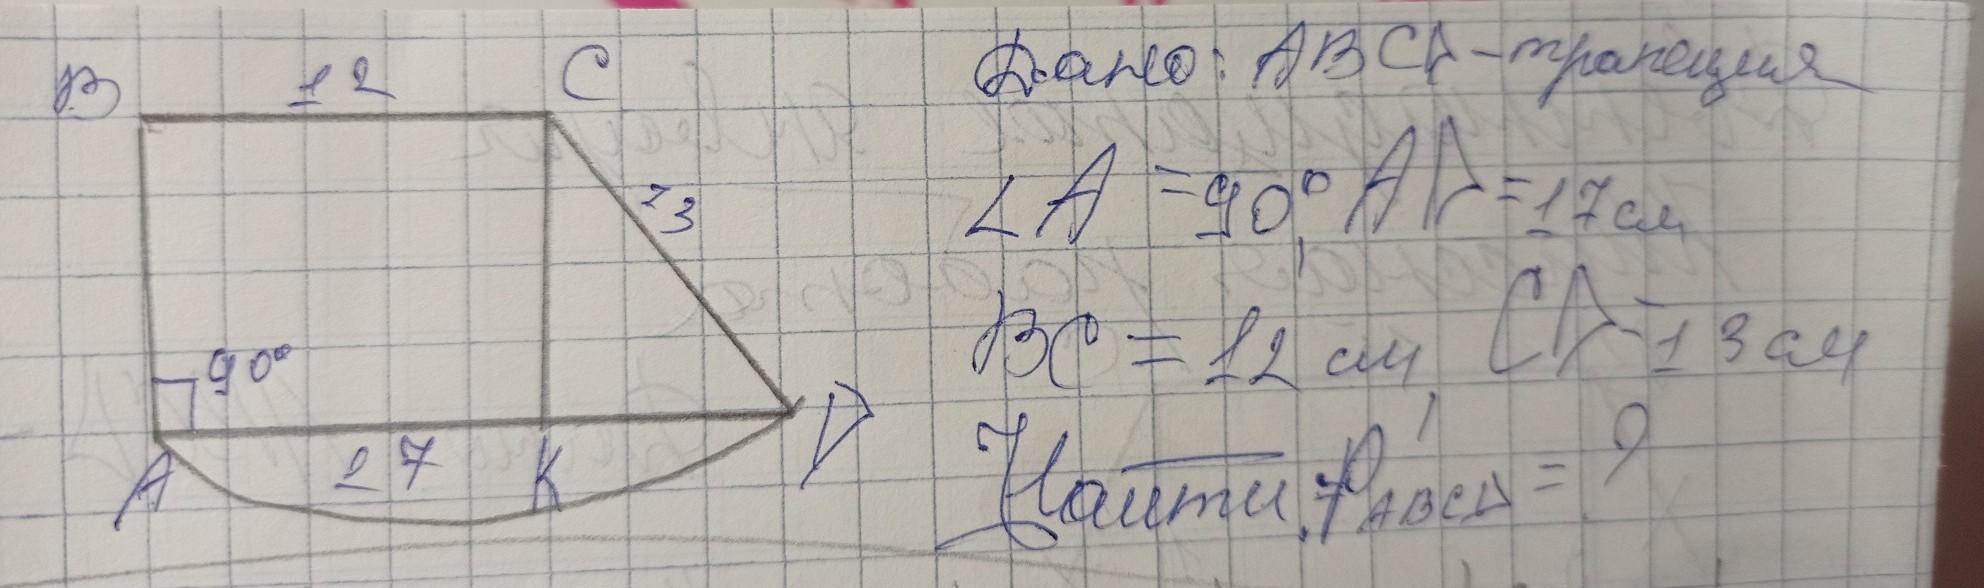 B 12 C
13
90°
A 17 K D
Дано: ABCD - трапеция
∠A = 90°, AD = 17 см
BC = 12 см, CD = 13 см
Найти: P ABCD = ?